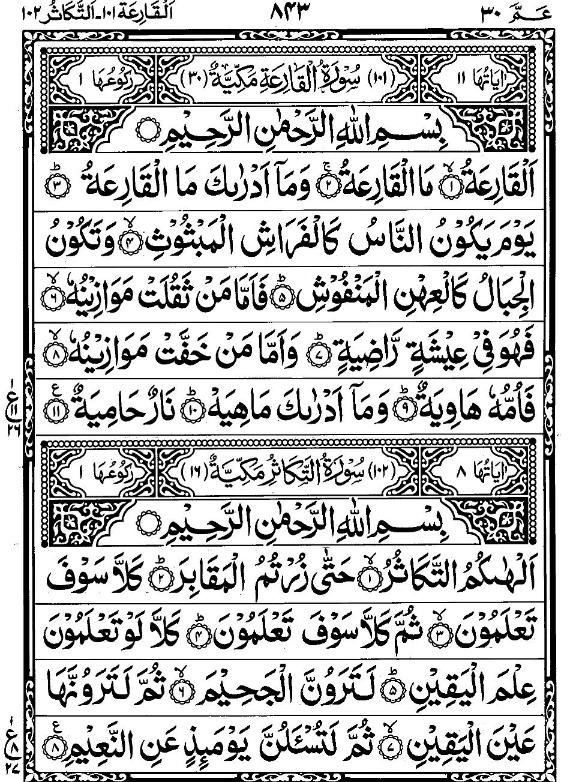 عَمَّ ٣٠ ٨٤٣ اَلْقَارِعَة ١٠١-اَلتَّكَاثُر ١٠٢
اٰيَاتُهَا ١١ (١٠١) سُوْرَةُ الْقَارِعَةِ مَكِّيَّةٌ (٣٠) رُكُوْعُهَا ١
بِسْمِ اللّٰهِ الرَّحْمٰنِ الرَّحِيْمِ
اَلْقَارِعَةُ ۙ‏﴿١﴾ مَا الْقَارِعَةُ ۚ‏﴿٢﴾ وَمَاۤ اَدْرٰىكَ مَا الْقَارِعَةُ ؕ‏﴿٣﴾
يَوْمَ يَكُوْنُ النَّاسُ كَالْفَرَاشِ الْمَبْثُوْثِ ۙ‏﴿٤﴾ وَتَكُوْنُ
الْجِبَالُ كَالْعِهْنِ الْمَنْفُوْشِ ؕ‏﴿٥﴾ فَاَمَّا مَنْ ثَقُلَتْ مَوَازِيْنُهٗ ۙ‏﴿٦﴾
فَهُوَ فِيْ عِيْشَةٍ رَّاضِيَةٍ ؕ‏﴿٧﴾ وَاَمَّا مَنْ خَفَّتْ مَوَازِيْنُهٗ ۙ‏﴿٨﴾
فَاُمُّهٗ هَاوِيَةٌ ؕ‏﴿٩﴾ وَمَاۤ اَدْرٰىكَ مَاهِيَهْ ؕ‏﴿١٠﴾ نَارٌ حَامِيَةٌ ‏﴿١١﴾ ع
١
١١
٢٦
اٰيَاتُهَا ٨ (١٠٢) سُوْرَةُ التَّكَاثُرِ مَكِّيَّةٌ (١٦) رُكُوْعُهَا ١
بِسْمِ اللّٰهِ الرَّحْمٰنِ الرَّحِيْمِ
اَلْهٰىكُمُ التَّكَاثُرُ ۙ‏﴿١﴾ حَتّٰى زُرْتُمُ الْمَقَابِرَ ؕ‏﴿٢﴾ كَلَّا سَوْفَ
تَعْلَمُوْنَ ۙ‏﴿٣﴾ ثُمَّ كَلَّا سَوْفَ تَعْلَمُوْنَ ؕ‏﴿٤﴾ كَلَّا لَوْ تَعْلَمُوْنَ
عِلْمَ الْيَقِيْنِ ؕ‏﴿٥﴾ لَتَرَوُنَّ الْجَحِيْمَ ۙ‏﴿٦﴾ ثُمَّ لَتَرَوُنَّهَا
عَيْنَ الْيَقِيْنِ ۙ‏﴿٧﴾ ثُمَّ لَتُسْـَٔلُنَّ يَوْمَىِٕذٍ عَنِ النَّعِيْمِ ‏﴿٨﴾ ع
١
٨
٢٧